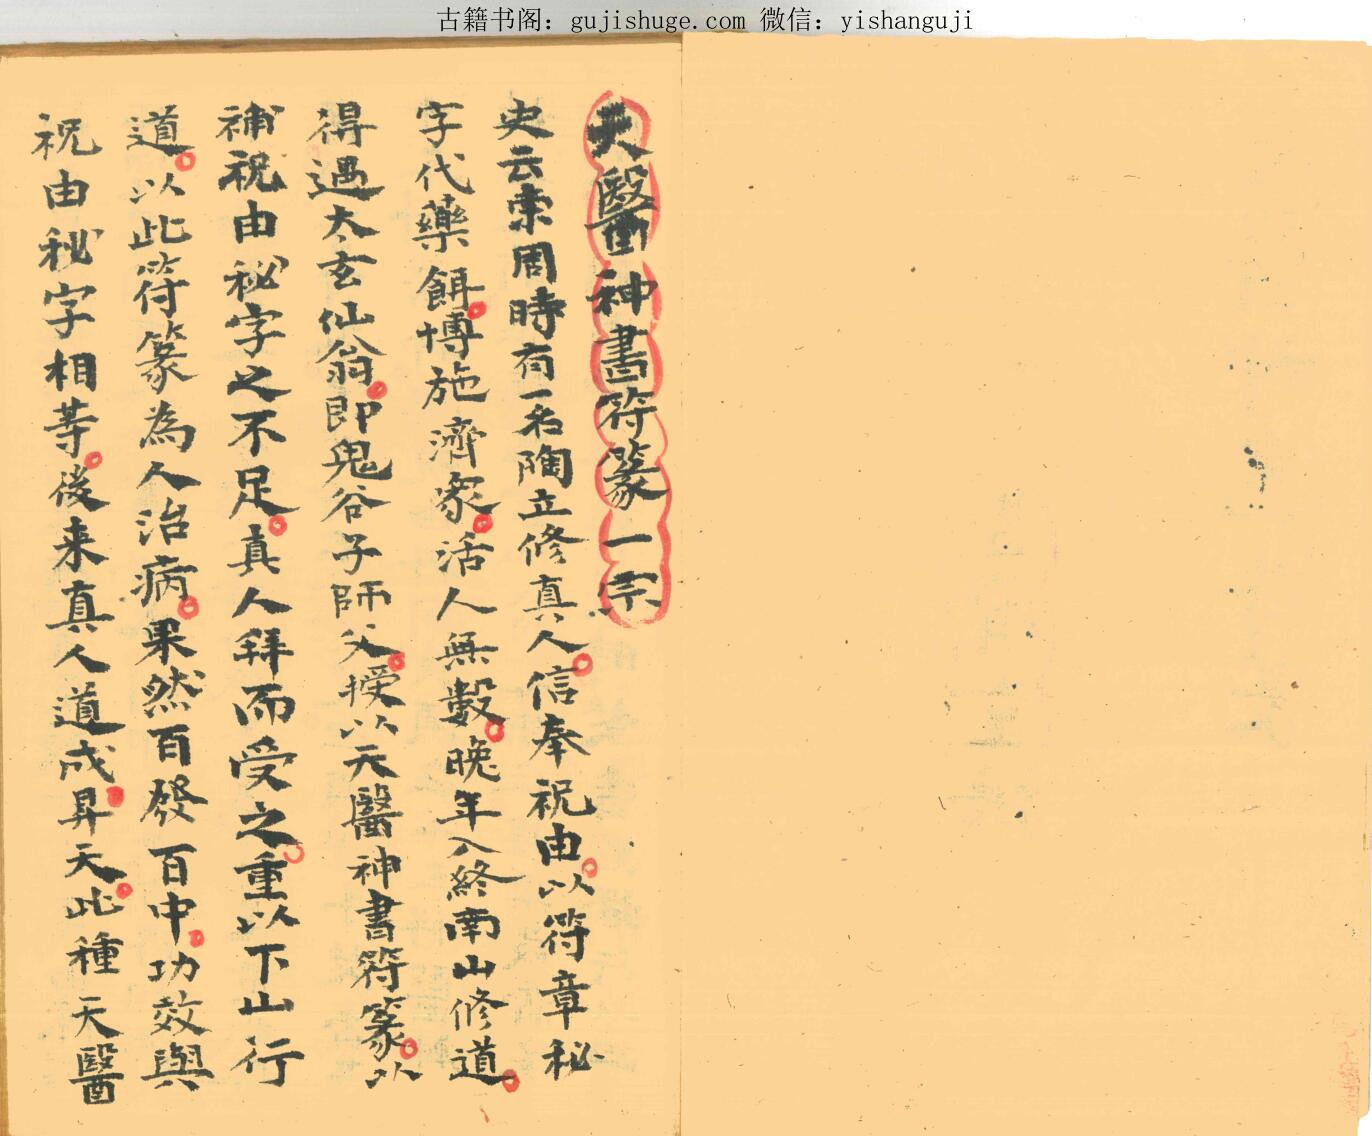 古籍书阁：gujishuge.com 微信：yishanguji
天醫神書符篆一宗
史云東周時有一名陶立修真人。信奉祝由。以符章秘
字代藥餌。博施濟衆。活人無數。晚年入終南山修道。
得遇太玄仙翁。即鬼谷子師父。授以天醫神書符篆。以
補祝由秘字之不足。真人拜而受之。重以下山行
道。以此符篆為人治病。果然百發百中。功效與
祝由秘字相等。後来真人道成。昇天。此種天醫